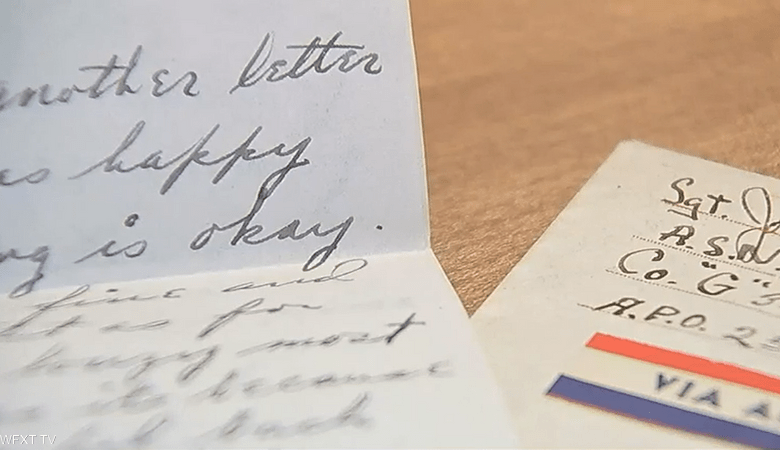 another letter
as happy
ng is okay.
fine and
as for
lousy most
its because
Sgt. J
A.S.
Co. "G"
A.P.O. 2
VIA A
WFXT TV